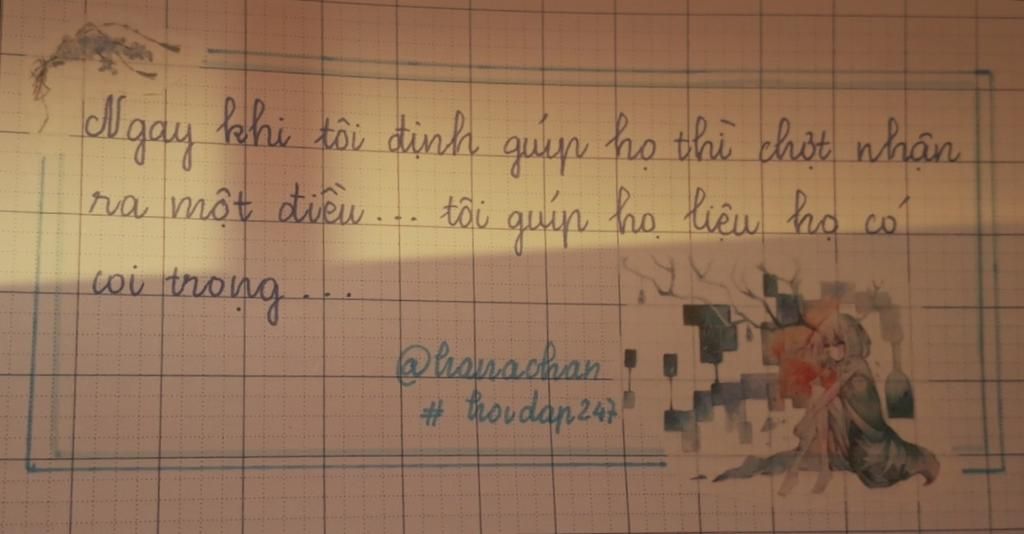 Ngay khi tôi định gúip họ thì chợt nhận
ra một điều... tôi gúip họ liệu họ có
coi trọng...
@hanachan
# hoidap247